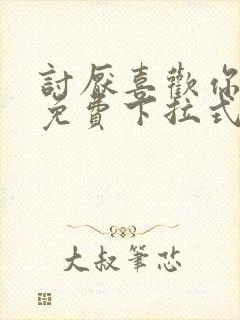 討厭喜歡你
免費下拉式
大叔筆芯